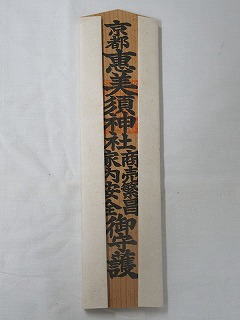 京都恵美須神社商売繁昌家内安全御守護